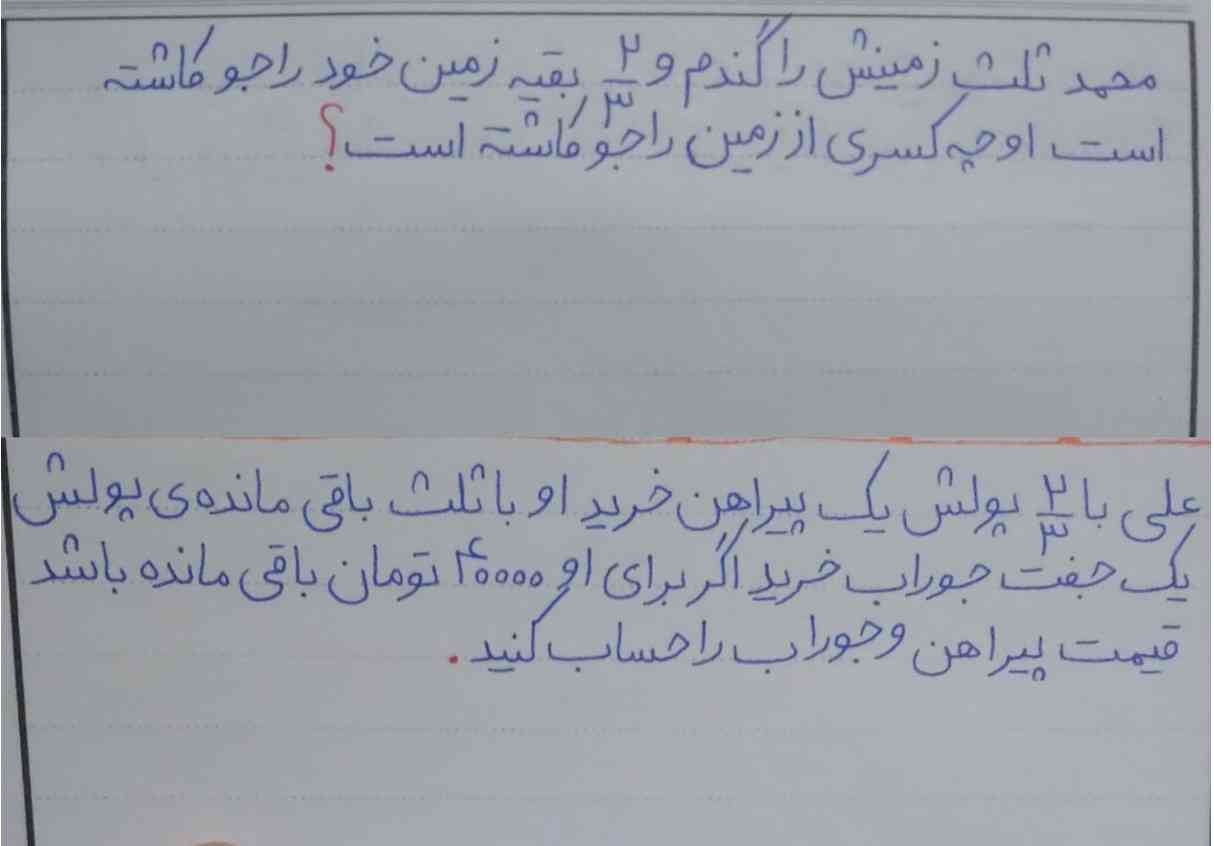 محمد ثلث زمینش را گندم و ۲/۳ بقیه زمین خود را جو کاشته
است او چه کسری از زمین را جو کاشته است؟
علی با ۲/۳ پولش یک پیراهن خرید او با ثلث باقی مانده‌ی پولش
یک جفت جوراب خرید اگر برای او ۴۰۰۰۰ تومان باقی مانده باشد
قیمت پیراهن و جوراب را حساب کنید.